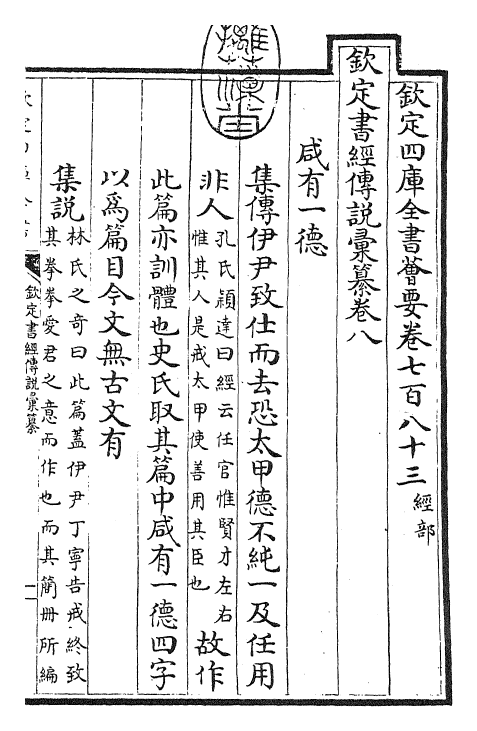 欽定四庫全書薈要卷七百八十三 經部
欽定書經傳說彙纂卷八
咸有一德
集傳伊尹致仕而去恐太甲德不純一及任用
非人 孔氏穎達曰經云任官惟賢才左右
惟其人是戒太甲使善用其臣也 故作
此篇亦訓體也史氏取其篇中咸有一德四字
以為篇目今文無古文有
集說 林氏之奇曰此篇蓋伊尹丁寧告戒終致
其拳拳愛君之意而作也而其簡冊所編
欽定書經傳說彙纂